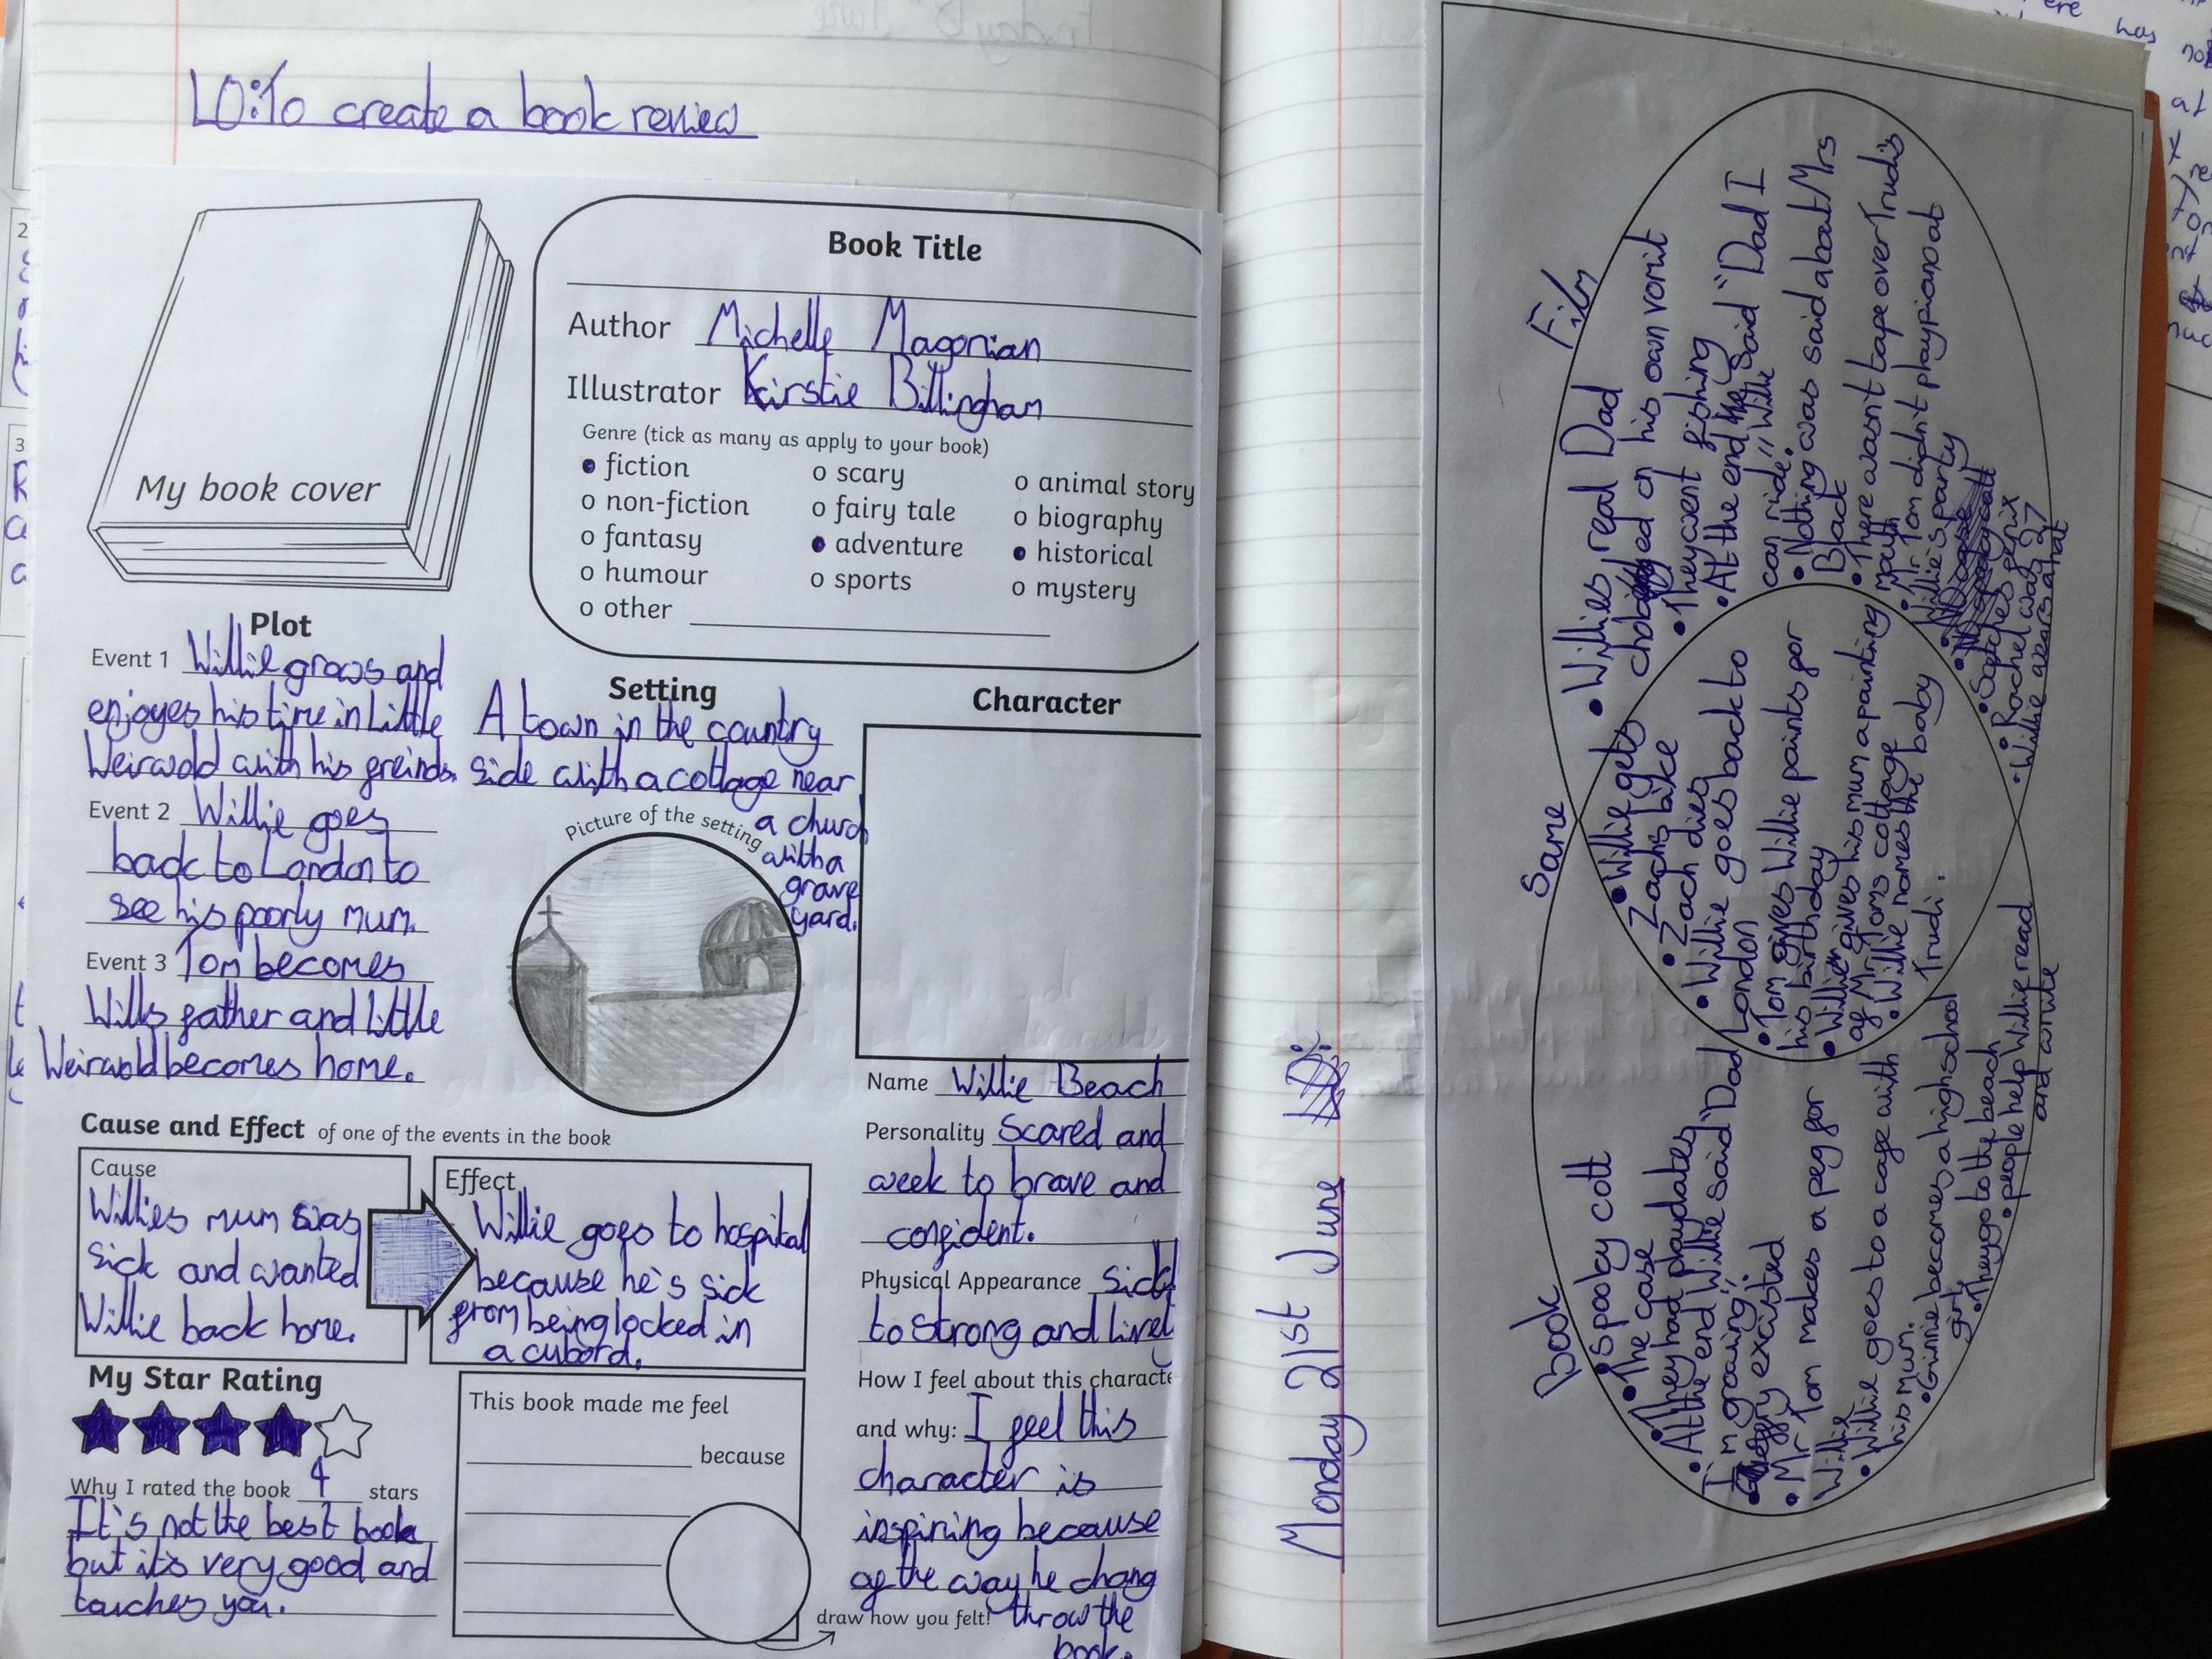 LO: To create a book review
My book cover
Book Title
Author Michelle Magorian
Illustrator Kirstie Billingham
Genre (tick as many as apply to your book)
fiction
o non-fiction
o fantasy
o humour
o other
o scary
o fairy tale
adventure
o sports
o animal story
o biography
historical
o mystery
Plot
Event 1 Willie grows and
enjoyes his time in Little
Weirwold with his freinds.
Event 2 Willie goes
back to London to
see his poorly mum.
Event 3 Tom becomes
Wills father and little
Weirwold becomes home.
Setting
A town in the country
side with a cottage near
a church
with a
grave
yard.
Picture of the setting
Character
Name Willie Beach
Personality Scared and
week to brave and
confident.
Physical Appearance sick
to strong and livel
How I feel about this characte
and why: I feel this
character is
inspiring because
of the way he chang
throw the
book.
Cause and Effect of one of the events in the book
Cause
Willies mum was
sick and wanted
Willie back home.
Effect
Willie goes to hospital
because he's sick
from being locked in
a cubord.
My Star Rating
Why I rated the book 4 stars
It's not the best book
but it's very good and
touches you.
This book made me feel
because
draw how you felt!
Monday 21st June
Book
• spooky cott
• The case
• They had playdates
• At the end Willie said "Dad
I'm growing"
existed
• Mr Tom makes a peg for
Willie
• Willie goes to a cafe with
his mum.
• Ginnie becomes a highschool
girl
• They go to the beach
• people help Willie read
and write
Same
• Willie gets
Zachs bike
• Zach dies
• Willie goes back to
London
• Tom gives Willie paints for
his birthday
• Willie gives his mum a painting
of Mr Toms cottage
• Willie names the baby
Trudi.
Film
• Willies real Dad
choked on his own vomit
• They went fishing
• At the end he said "Dad I
can ride" Willie
• Nothing was said about Mrs
Black
• There wasn't tape over Trudis
mouth
• Mr Tom didn't play piano at
Willie's party
• Rachel was 27
• Willie wears a hat